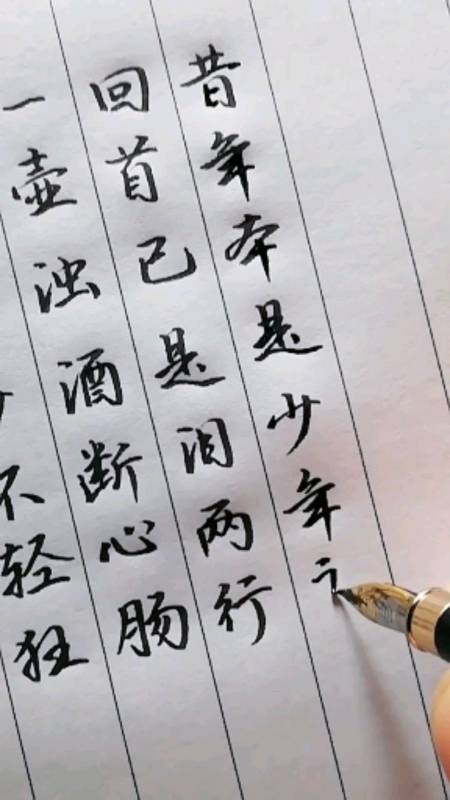 昔年本是少年
回首已是泪两行
一壶浊酒断心肠
少不轻狂